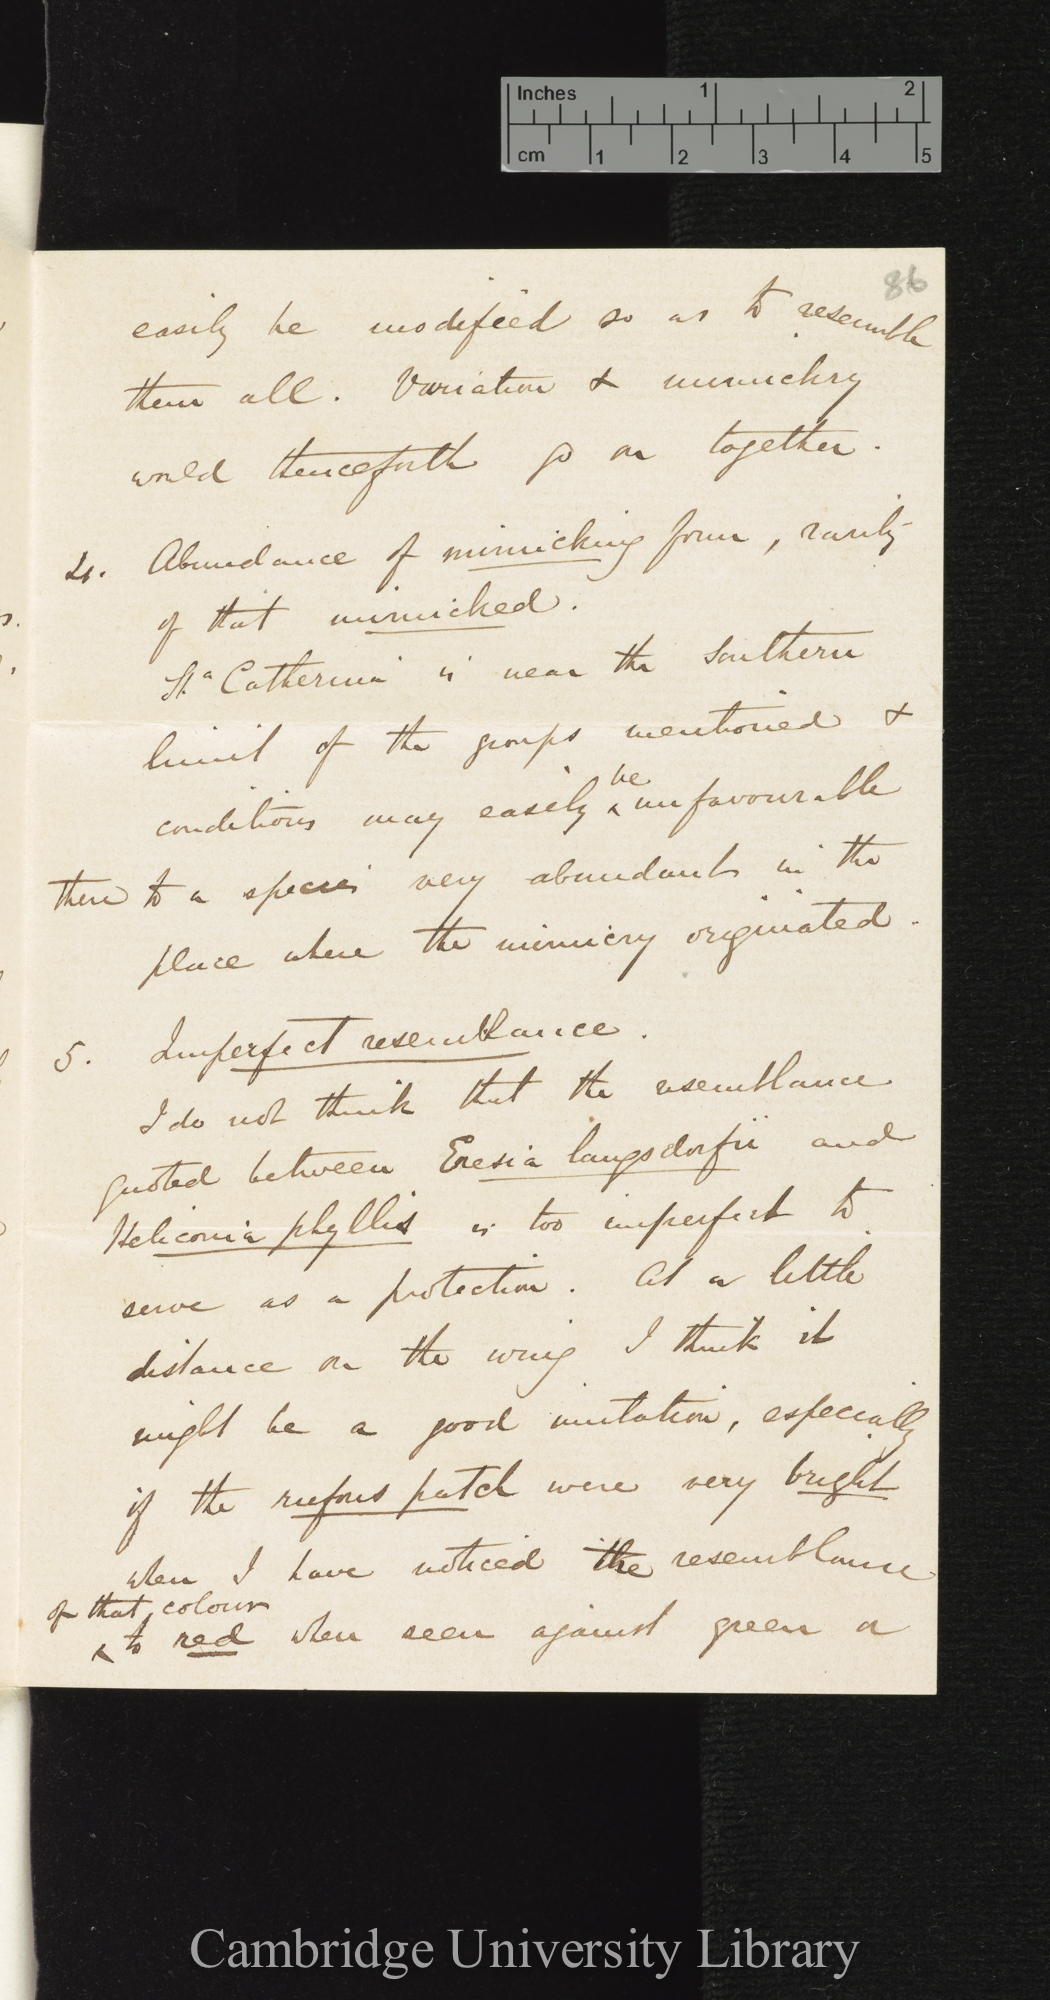 Inches 1 2
cm 1 2 3 4 5
86
easily be modified so as to resemble
them all. Variation & mimickry
would thenceforth go on together.
4. Abundance of mimicking form, rarity
of that mimicked.
Sta. Catherina is near the Southern
limit of the groups mentioned &
conditions may easily be unfavourable
there to a species very abundant in the
place where the mimicry originated.
5. Imperfect resemblance.
I do not think that the resemblance
quoted between Eresia langsdorfii and
Heliconia phyllis is too imperfect to
serve as a protection. At a little
distance on the wing I think it
might be a good imitation, especially
if the rufous patch were very bright
when I have noticed the resemblance
of that colour
to red when seen against green or
Cambridge University Library